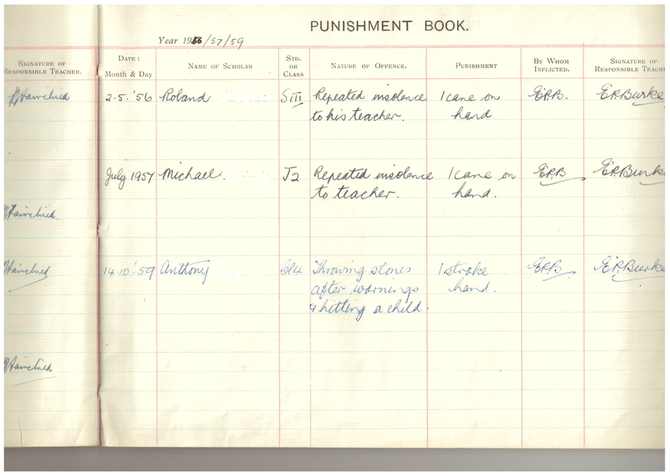 PUNISHMENT BOOK.
Year 1956/57/59
SIGNATURE OF RESPONSIBLE TEACHER.
DATE: Month & Day
NAME OF SCHOLAR
STD. OR CLASS
NATURE OF OFFENCE.
PUNISHMENT
BY WHOM INFLICTED.
SIGNATURE OF RESPONSIBLE TEACHE
2.5.'56 Roland SIII Repeated insolence 1 cane on ERB. ERBurke
to his teacher. hand
July 1957 Michael. J2 Repeated insolence 1 cane on ERB ERBurke
to teacher. hand.
Fairchied
14.10.'59 Anthony Throwing stones 1 stroke ERB ERBurke
after warnings hand.
& hitting a child.